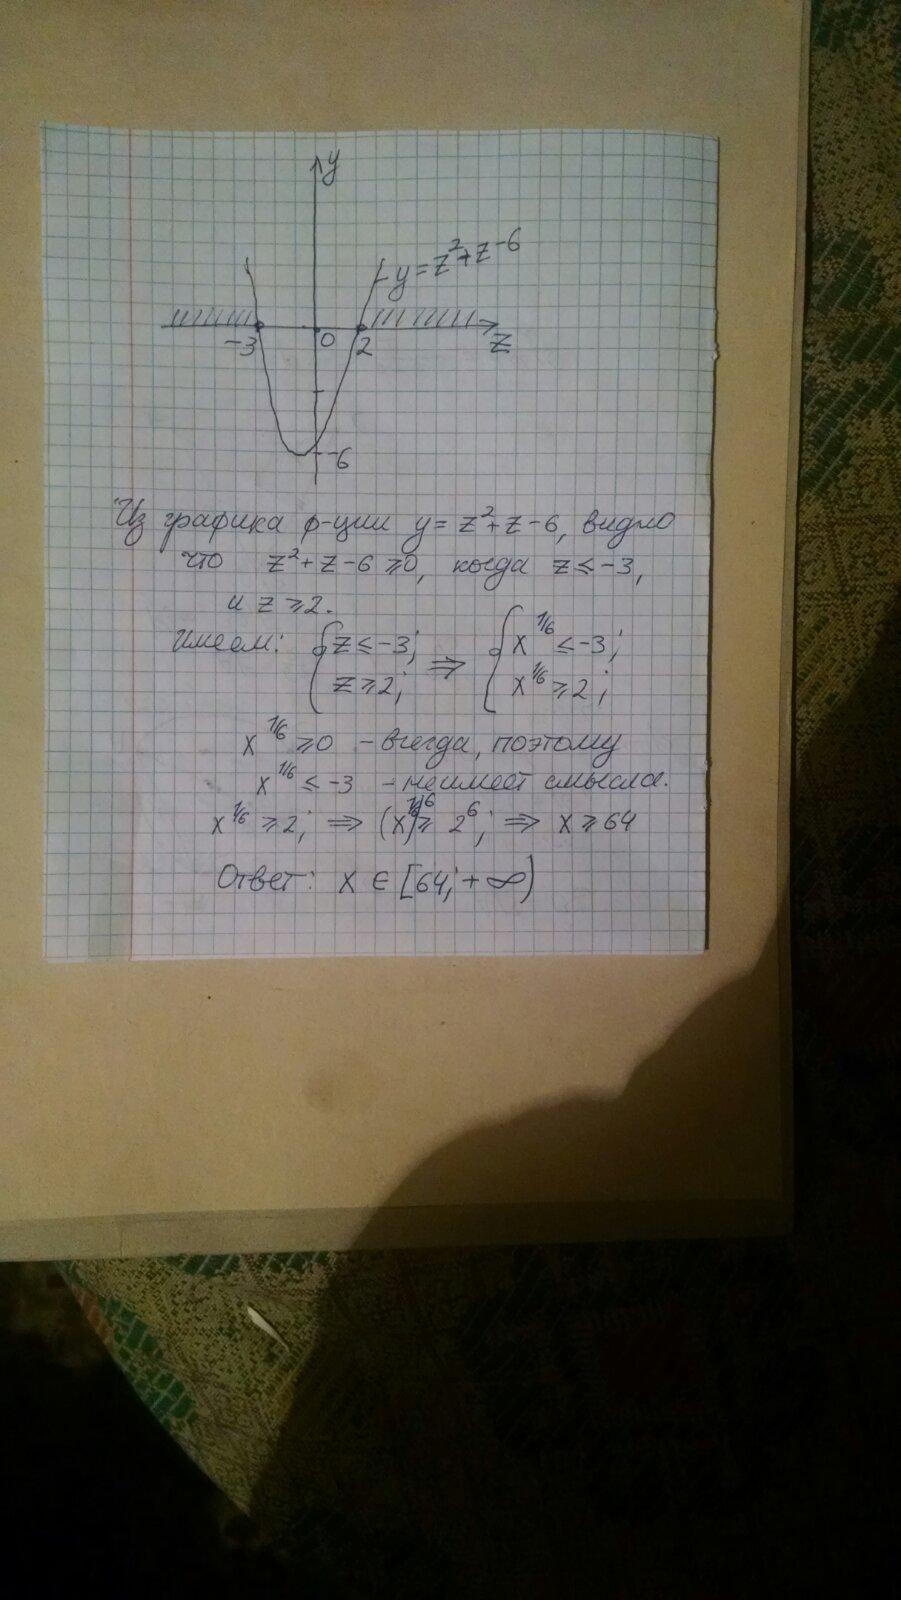 y
y = z² + z - 6
-3 0 2 z
-6
Из графика ф-ции y = z² + z - 6, видно
что z² + z - 6 ⩾ 0, когда z ⩽ -3,
и z ⩾ 2.
Имеем: { z ⩽ -3; z ⩾ 2; ⇒ { x^1/6 ⩽ -3; x^1/6 ⩾ 2;
x^1/6 ⩾ 0 - всегда, поэтому
x^1/6 ⩽ -3 - не имеет смысла.
x^1/6 ⩾ 2; ⇒ (x^1/6)^6 ⩾ 2^6; ⇒ x ⩾ 64
Ответ: x ∈ [64; + ∞)